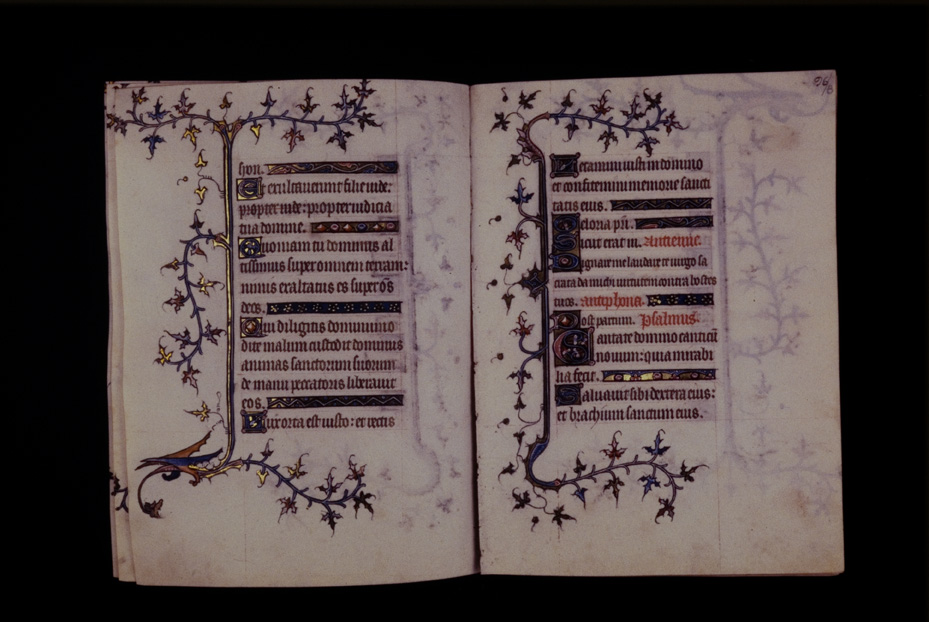 syon.
Et exultauerunt filie iude:
propter iude: propter iudicia
tua domine.
Quoniam tu dominus al
tissimus super omnem terram:
nimis exaltatus es super os̄
deos.
Qui diligitis dominum o
dite malum custodit dominus
animas sanctorum suorum
de manu peccatoris liberauit
eos.
Lux orta est iusto: et rectis
96
Letamini iusti in domino
et confitemini memorie sancti
tatis eius.
Gloria pri.
Sicut erat in. Antienne.
Dignare me laudare te uirgo sa
crata da michi uirtutem contra hostes
tuos. antiphona.
Post partum. Psalmus.
Cantate domino canticū
nouum: quia mirabi
lia fecit.
Saluauit sibi dextera eius:
et brachium sanctum eius.